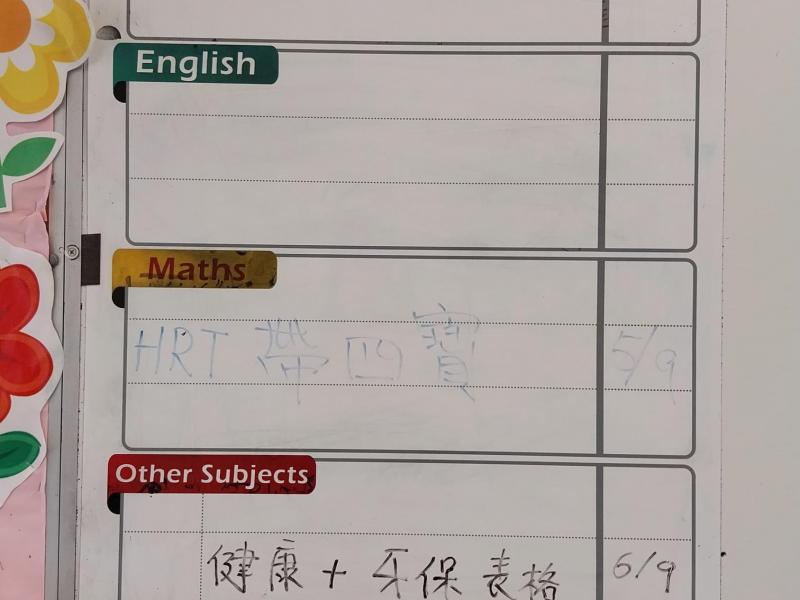 English
Maths
HRT 帶四寶 5/9
Other Subjects
健康 + 牙保表格 6/9